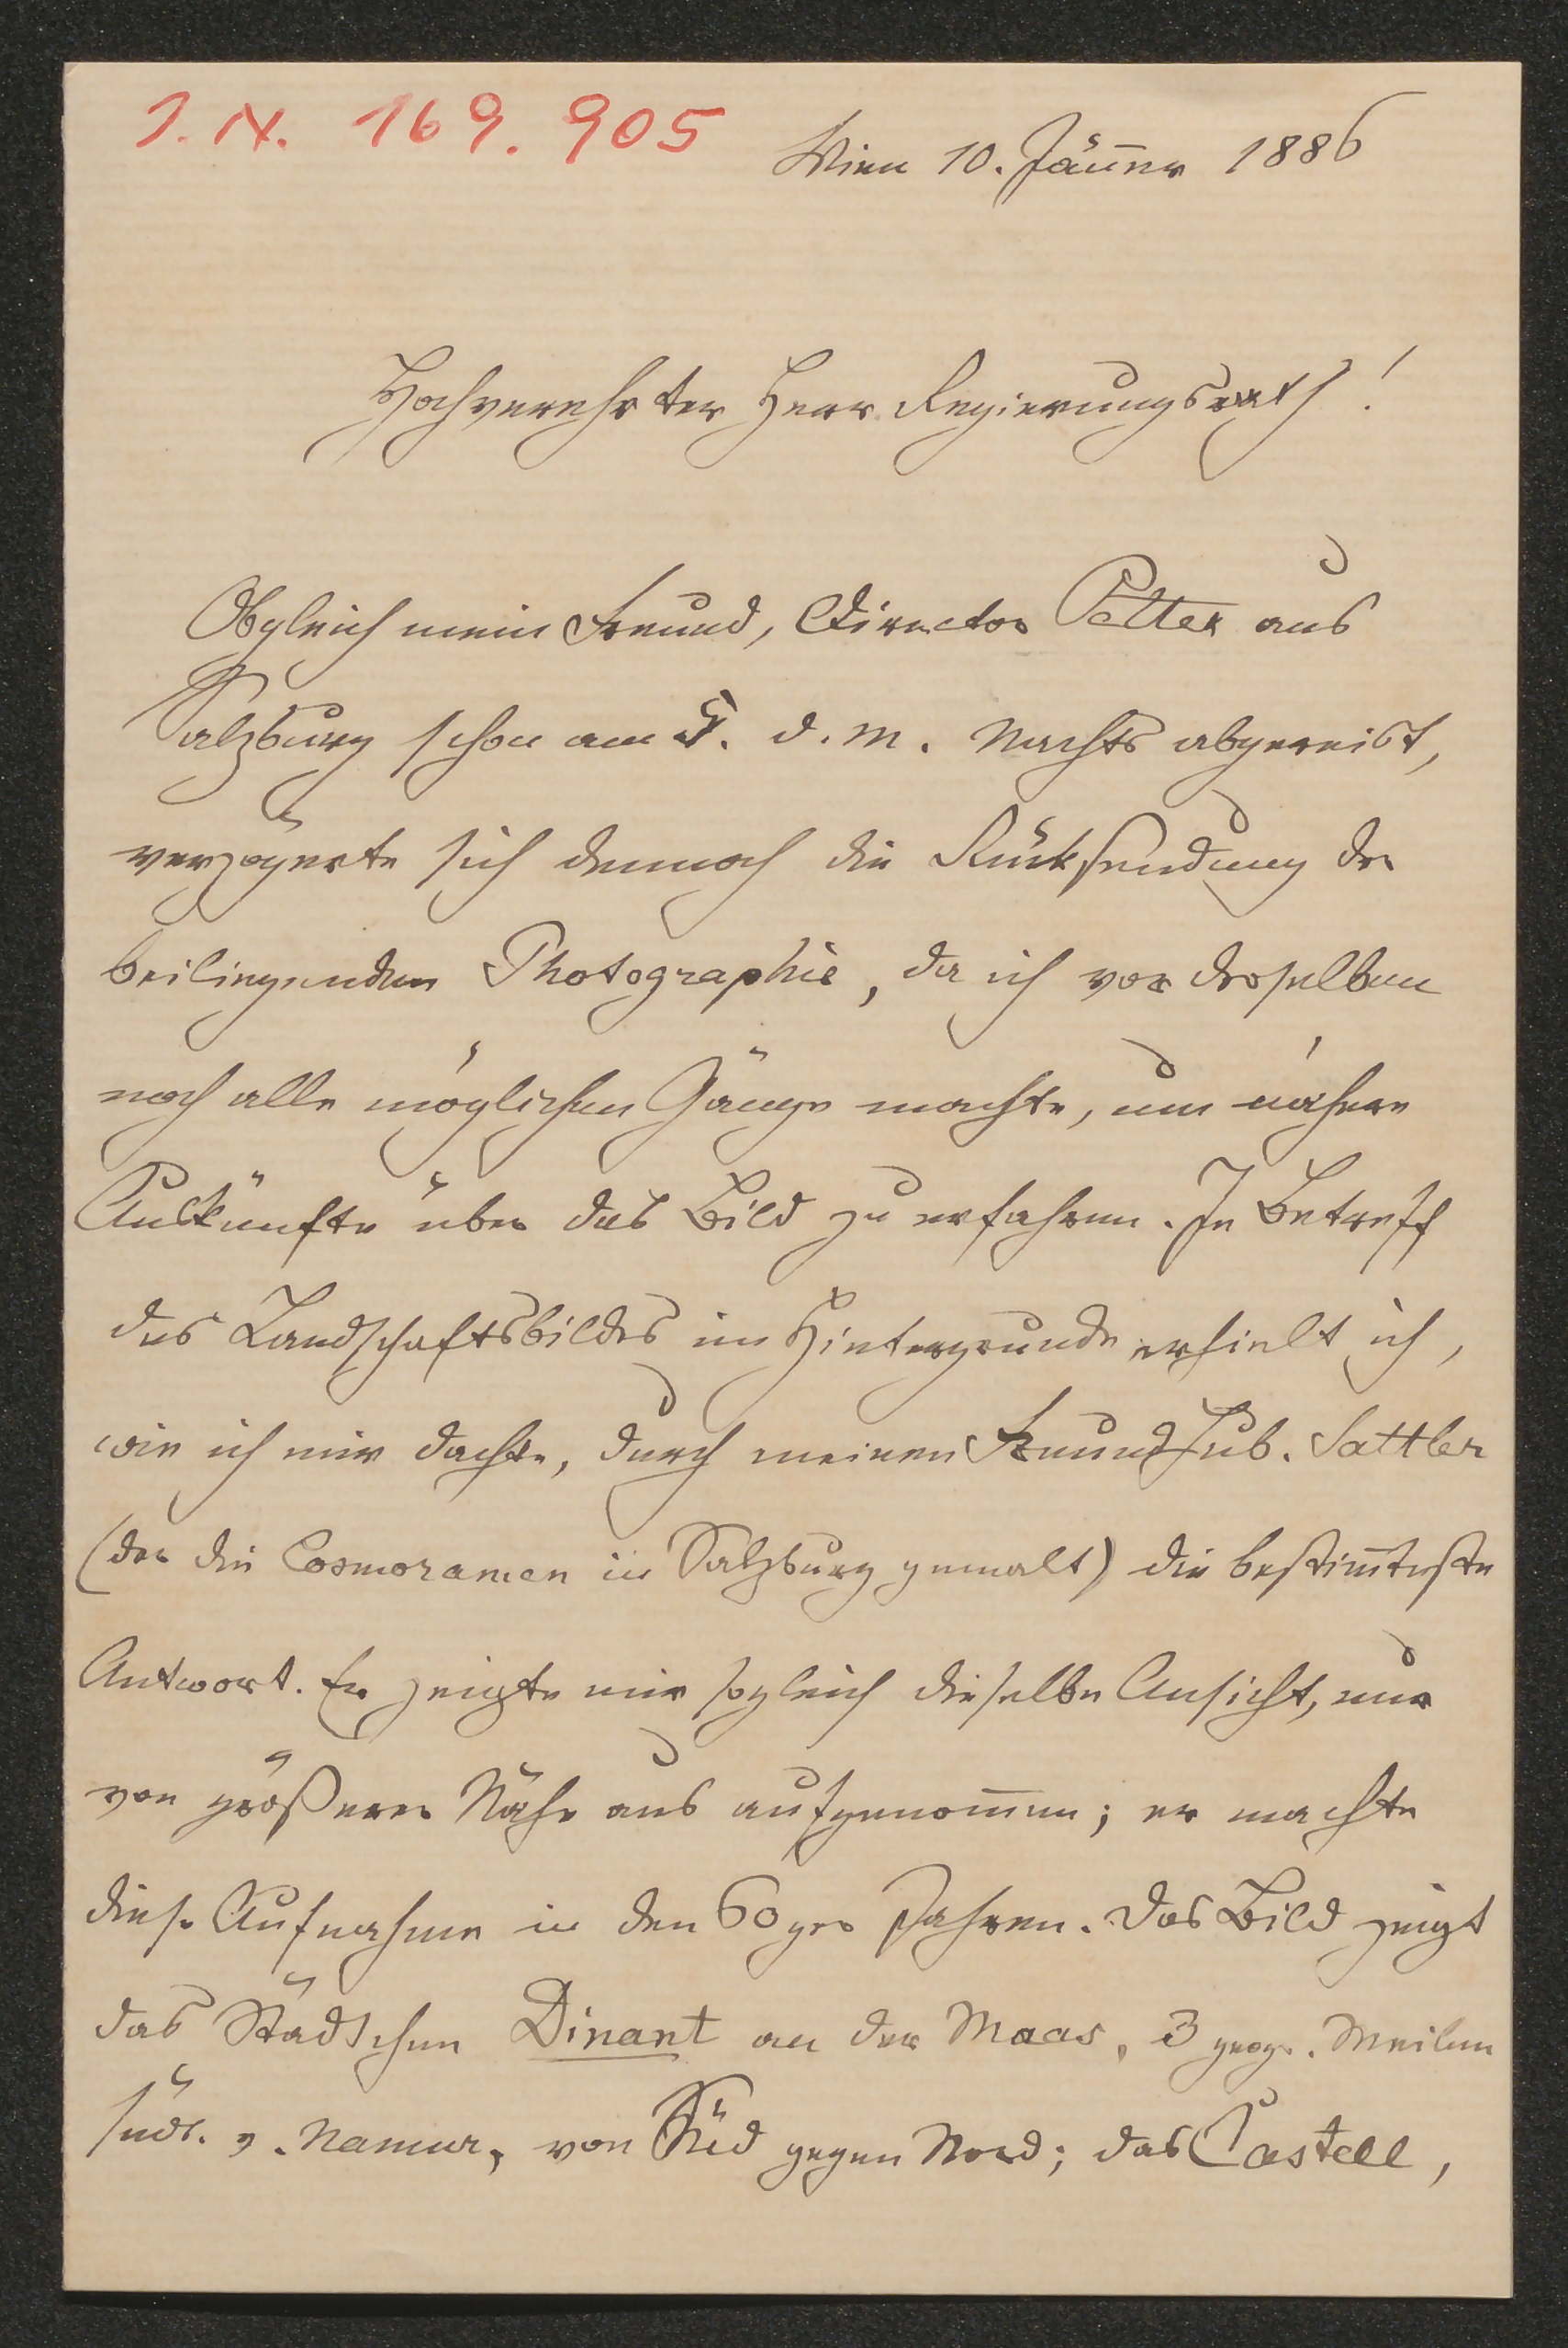 I. N. 169.905
Wien 10. Jänner 1886
Hochverehrter Herr Regierungsrath!
Obgleich mein Freund, Director Petter aus
Salzburg schon am 5. d. M. Nachts abgereist,
verzögerte sich dennoch die Rücksendung der
beiliegenden Photographie, da ich vor derselben
noch alle möglichen Gänge machte, um nähere
Auskünfte über das Bild zu erfahren. In Betreff
des Landschaftsbildes im Hintergrunde erhielt ich,
wie ich mir dachte, durch meinen Freund Hub. Sattler
(der die Cosmoramen in Salzburg gemalt) die bestim̅teste
Antwort. Er zeigte mir sogleich dieselbe Ansicht, nur
von größerer Nähe aus aufgenom̅en; er machte
diese Aufnahme in den 60ger Jahren. Das Bild zeigt
das Städtchen Dinant an der Maas, 3 geogr. Meilen
südl. v. Namur, von Süd gegen Nord; das Castell,